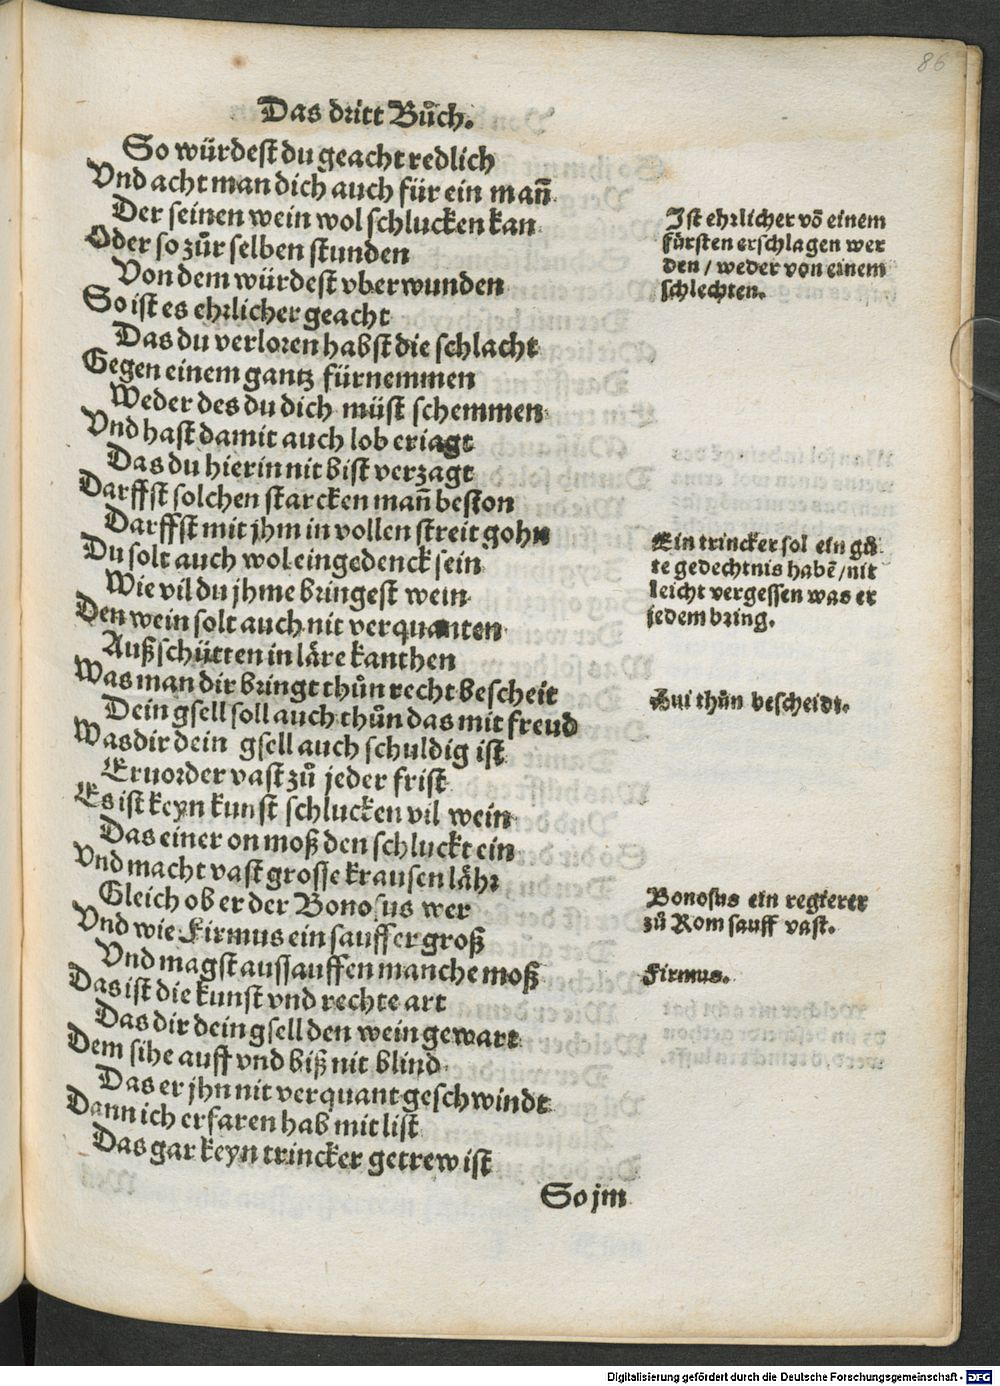 86
Das dritt Bůch.
So würdest du geacht redlich
Vnd acht man dich auch für ein mañ
Der seinen wein wol schlucken kan
Oder so zůr selben stunden
Von dem würdest vberwunden
So ist es ehrlicher geacht
Das du verloren habst die schlacht
Gegen einem gantz fürnemmen
Weder des du dich müst schemmen
Vnd hast damit auch lob eriagt
Das du hierin nit bist verzagt
Darffst solchen starcken mañ beston
Darffst mit jhm in vollen streit gohn
Du solt auch wol eingedenck sein
Wie vil du jhme bringest wein
Den wein solt auch nit verquanten
Außschütten in läre kanthen
Was man dir bringt thůn recht bescheit
Dein gsell soll auch thůn das mit freud
Was dir dein gsell auch schuldig ist
Eruorder vast zů jeder frist
Es ist keyn kunst schlucken vil wein
Das einer on moß den schluckt ein
Vnd macht vast grosse krausen lähr
Gleich ob er der Bonosus wer
Vnd wie Firmus ein sauffer groß
Vnd magst aussauffen manche moß
Das ist die kunst vnd rechte art
Das dir dein gsell den wein gewart
Dem sihe auff vnd biß nit blind
Das er jhn nit verquant geschwindt
Dann ich erfaren hab mit list
Das gar keyn trincker getrew ist
So jm
Ist ehrlicher võ einem
fürsten erschlagen wer
den / weder von einem
schlechten.
Ein trincker sol ein gů
te gedechtnis habẽ / nit
leicht vergessen was er
jedem bring.
Zui thůn bescheidt.
Bonosus ein regierer
zů Rom sauff vast.
Firmus.
Digitalisierung gefördert durch die Deutsche Forschungsgemeinschaft - DFG